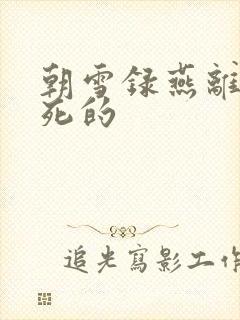 朝雪録燕離
死的
追光寫影工作